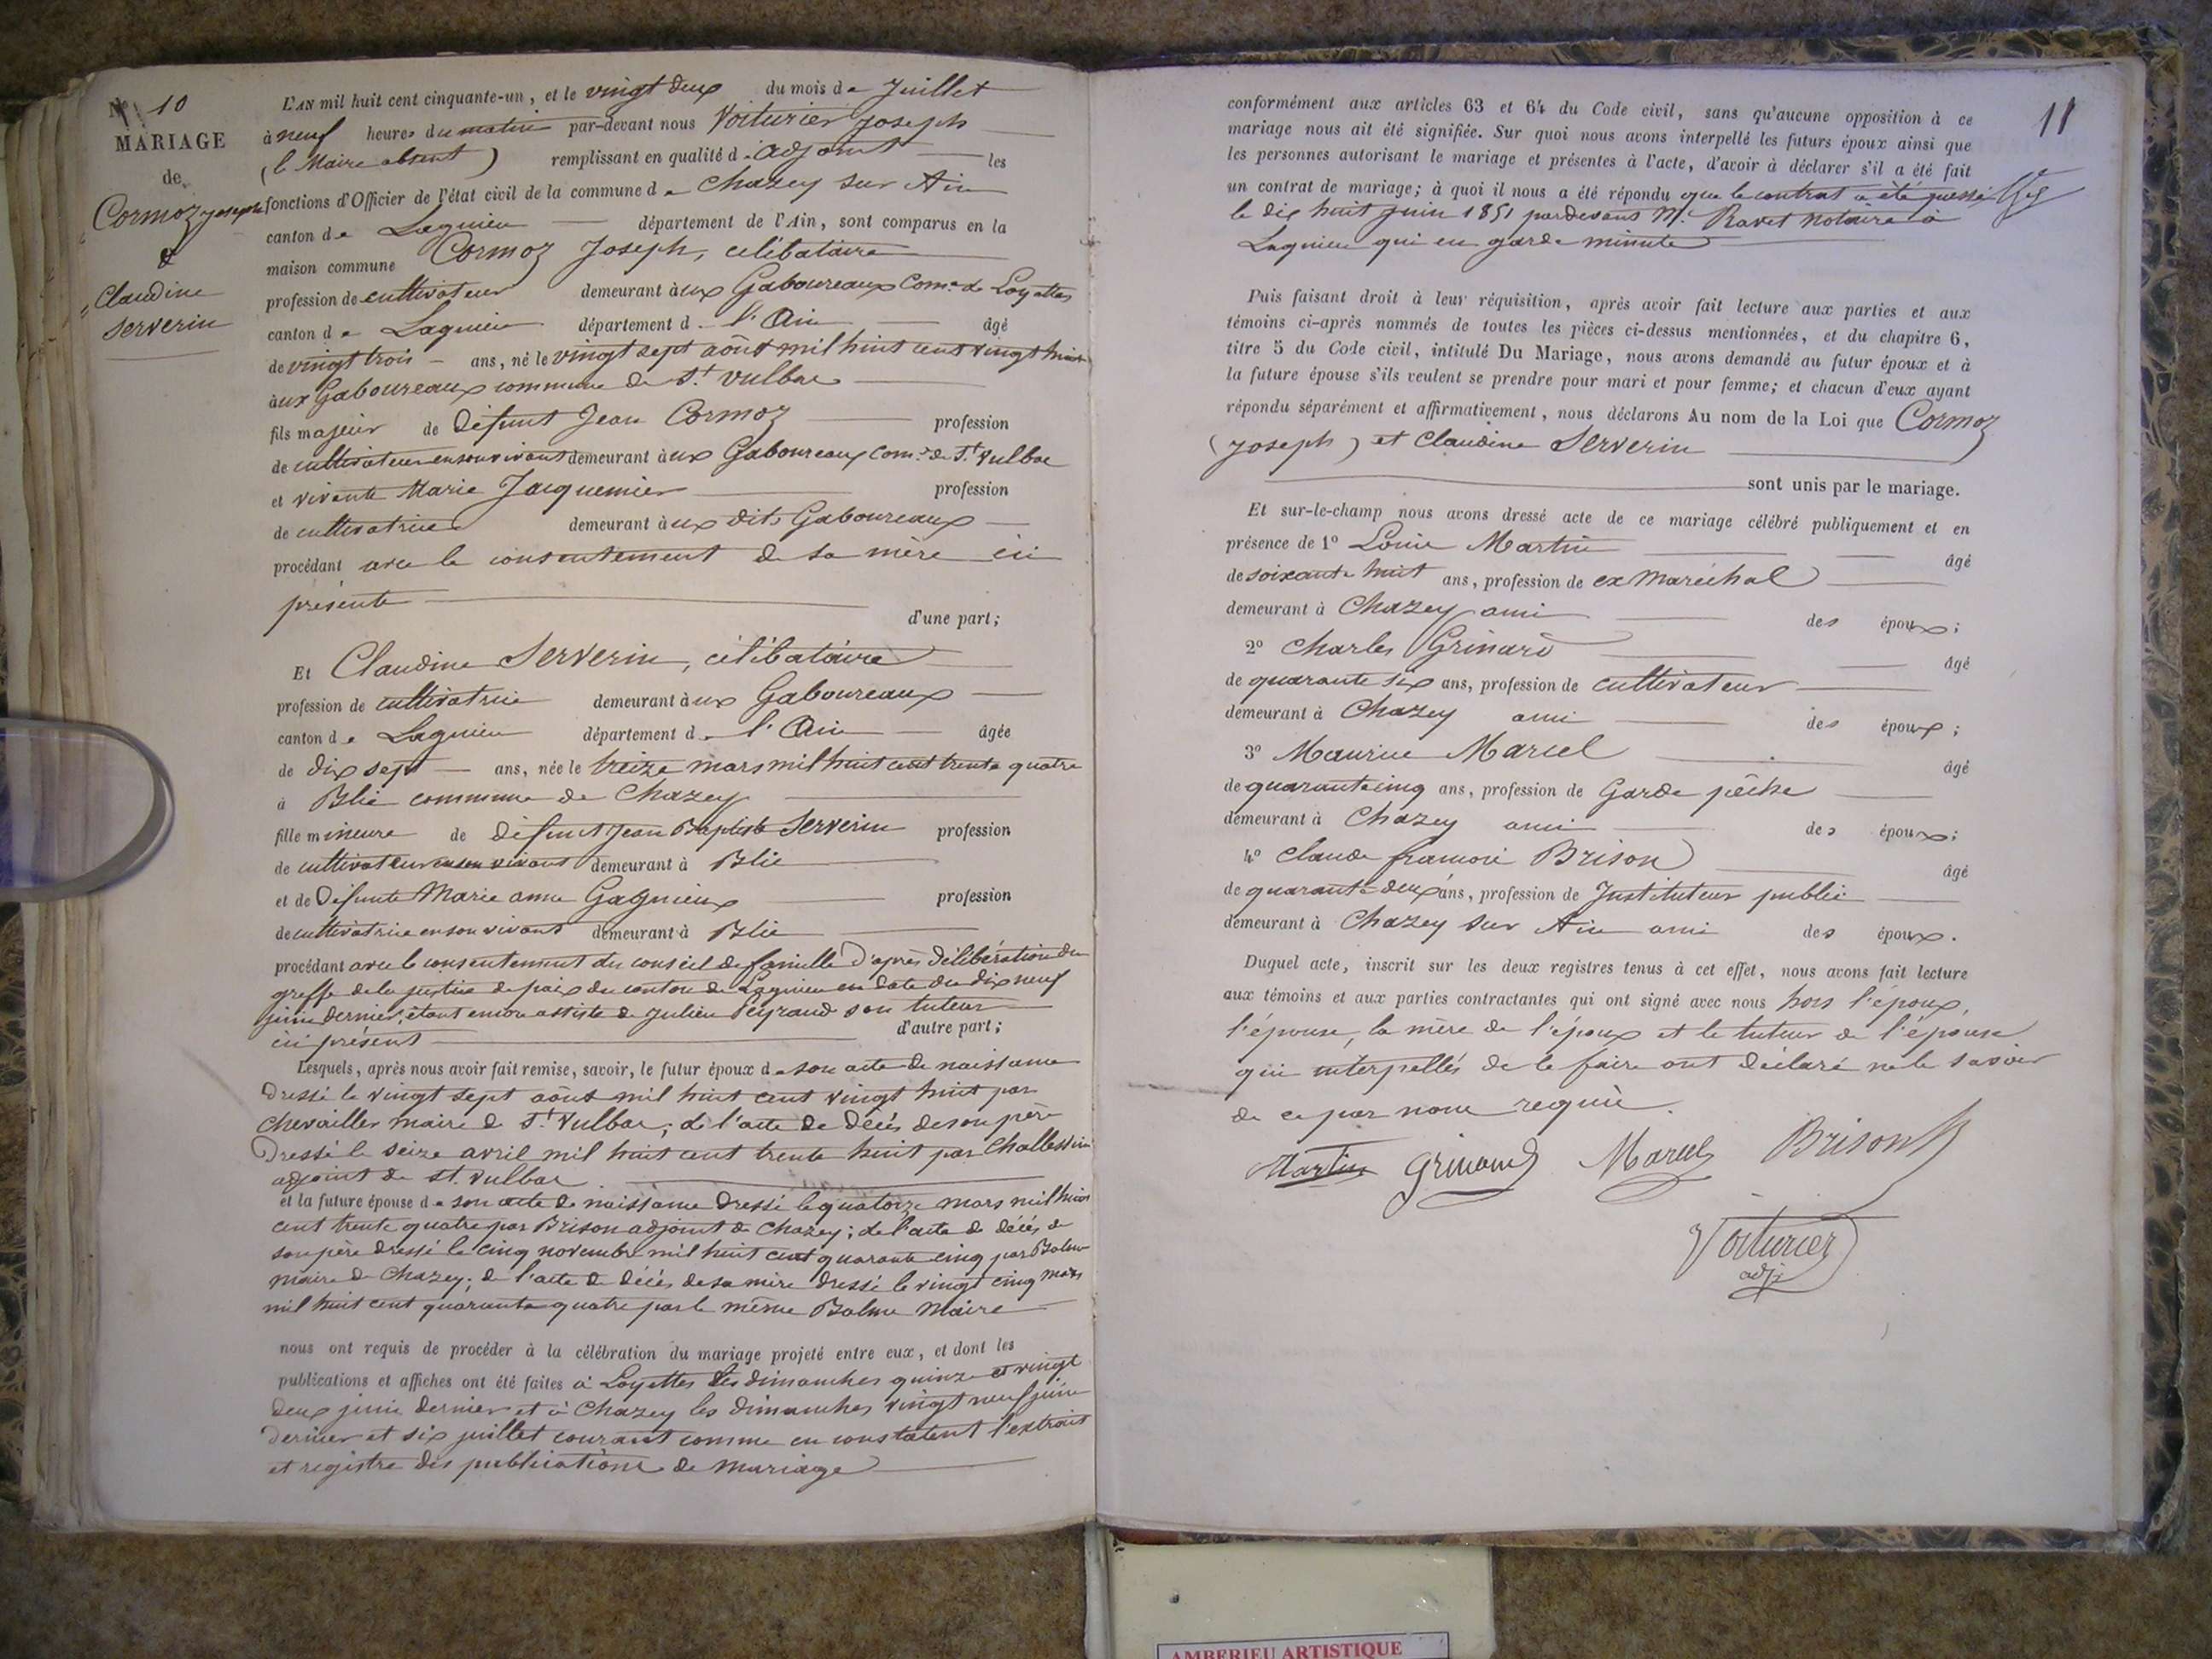 N° 10
MARIAGE
de
Cormoz Joseph
&
Claudine
Serverin
L'AN mil huit cent cinquante-un, et le vingt deux du mois de Juillet
à neuf heures du matin par-devant nous Voiturier Joseph
(le Maire absent) remplissant en qualité d'adjoint les
fonctions d'Officier de l'état civil de la commune de Chazey sur Ain
canton de Lagnieu département de l'Ain, sont comparus en la
maison commune Cormoz Joseph, célibataire
profession de cultivateur demeurant aux Gaboureaux Com.e de Loyettes
canton de Lagnieu département de l'Ain âgé
de vingt trois ans, né le vingt sept août mil huit cent vingt huit
aux Gaboureaux commune de St Vulbas
fils majeur de défunt Jean Cormoz profession
de cultivateur en son vivant demeurant aux Gaboureaux com.e de St Vulbas
et vivante Marie Jacquemier profession
de cultivatrice demeurant aux dits Gaboureaux
procédant avec le consentement de sa mère ici
présente
d'une part;
Et Claudine Serverin, célibataire
profession de cultivatrice demeurant aux Gaboureaux
canton de Lagnieu département de l'Ain âgée
de dix sept ans, née le treize mars mil huit cent trente quatre
à Blie commune de Chazey
fille mineure de défunt Jean Baptiste Serverin profession
de cultivateur en son vivant demeurant à Blie
et de défunte Marie anne Gagnieux profession
de cultivatrice en son vivant demeurant à Blie
procédant avec le consentement du conseil de famille d'après délibération du
greffe de la justice de paix du canton de Lagnieu en date du dix neuf
juin dernier, étant encore assistée de Julien Peyraud son tuteur
ici présent d'autre part;
Lesquels, après nous avoir fait remise, savoir, le futur époux de son acte de naissance
dressé le vingt sept août mil huit cent vingt huit par
Chevailler maire de St Vulbas; de l'acte de décès de son père
dressé le seize avril mil huit cent trente huit par
adjoint de St. Vulbas
et la future épouse de son acte de naissance dressé le quatorze mars mil huit
cent trente quatre par Brison adjoint de Chazey; de l'acte de décès de
son père dressé le cinq novembre mil huit cent quarante cinq par Balme
maire de Chazey; de l'acte de décès de sa mère dressé le vingt cinq mars
mil huit cent quarante quatre par le même Balme Maire
nous ont requis de procéder à la célébration du mariage projeté entre eux, et dont les
publications et affiches ont été faites à Loyettes les dimanches quinze et vingt
deux juin dernier et à Chazey les dimanches vingt neuf juin
dernier et six juillet courant comme en constatent l'extrait
et registre des publications de mariage
11
conformément aux articles 63 et 64 du Code civil, sans qu'aucune opposition à ce
mariage nous ait été signifiée. Sur quoi nous avons interpellé les futurs époux ainsi que
les personnes autorisant le mariage et présentes à l'acte, d'avoir à déclarer s'il a été fait
un contrat de mariage; à quoi il nous a été répondu que le contrat a été passé
le dix huit juin 1851 pardevant M.e Ravet Notaire à
Lagnieu qui en garde minute
Puis faisant droit à leur réquisition, après avoir fait lecture aux parties et aux
témoins ci-après nommés de toutes les pièces ci-dessus mentionnées, et du chapitre 6,
titre 5 du Code civil, intitulé Du Mariage, nous avons demandé au futur époux et à
la future épouse s'ils veulent se prendre pour mari et pour femme; et chacun d'eux ayant
répondu séparément et affirmativement, nous déclarons Au nom de la Loi que Cormoz
(Joseph) et Claudine Serverin
sont unis par le mariage.
Et sur-le-champ nous avons dressé acte de ce mariage célébré publiquement et en
présence de 1° Louis Martin âgé
de soixante huit ans, profession de ex Maréchal
demeurant à Chazey ami des époux;
2° Charles Grinand âgé
de quarante six ans, profession de cultivateur
demeurant à Chazey ami des époux;
3° Maurice Marcel âgé
de quarante cinq ans, profession de Garde pêche
demeurant à Chazey ami des époux;
4° Claude françois Brison âgé
de quarante deux ans, profession de Instituteur public
demeurant à Chazey sur Ain ami des époux.
Duquel acte, inscrit sur les deux registres tenus à cet effet, nous avons fait lecture
aux témoins et aux parties contractantes qui ont signé avec nous hors l'époux,
l'épouse, la mère de l'époux et le tuteur de l'épouse
qui interpellés de le faire ont déclaré ne le savoir
de ce par nous requis.
Martin Grinand Marcel Brison
Voiturier
adj.
AMBERIEU ARTISTIQUE